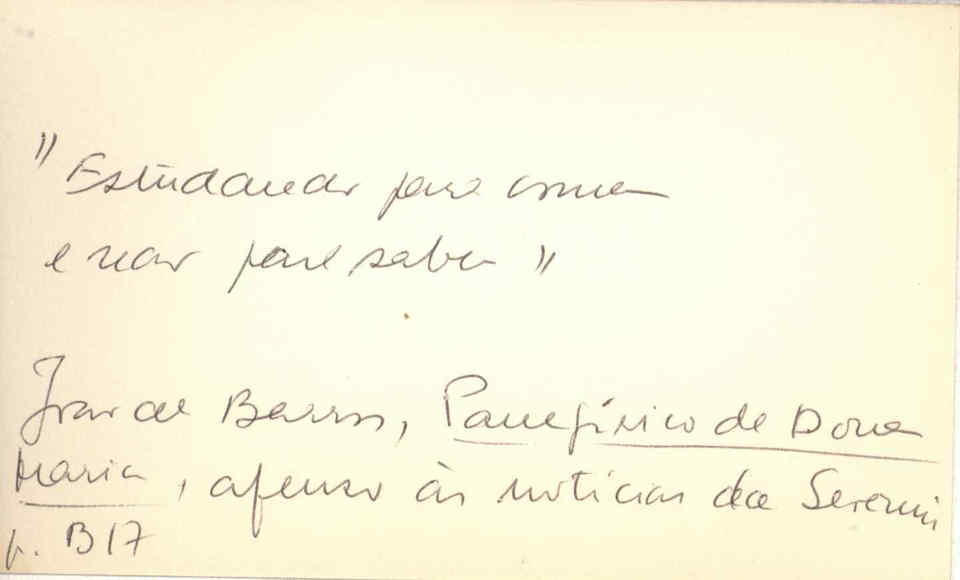 "Estudando para comer
e não para saber"
João de Barros, Panegírico de Dona
Maria, apenso às notícias de Severim
p. 317